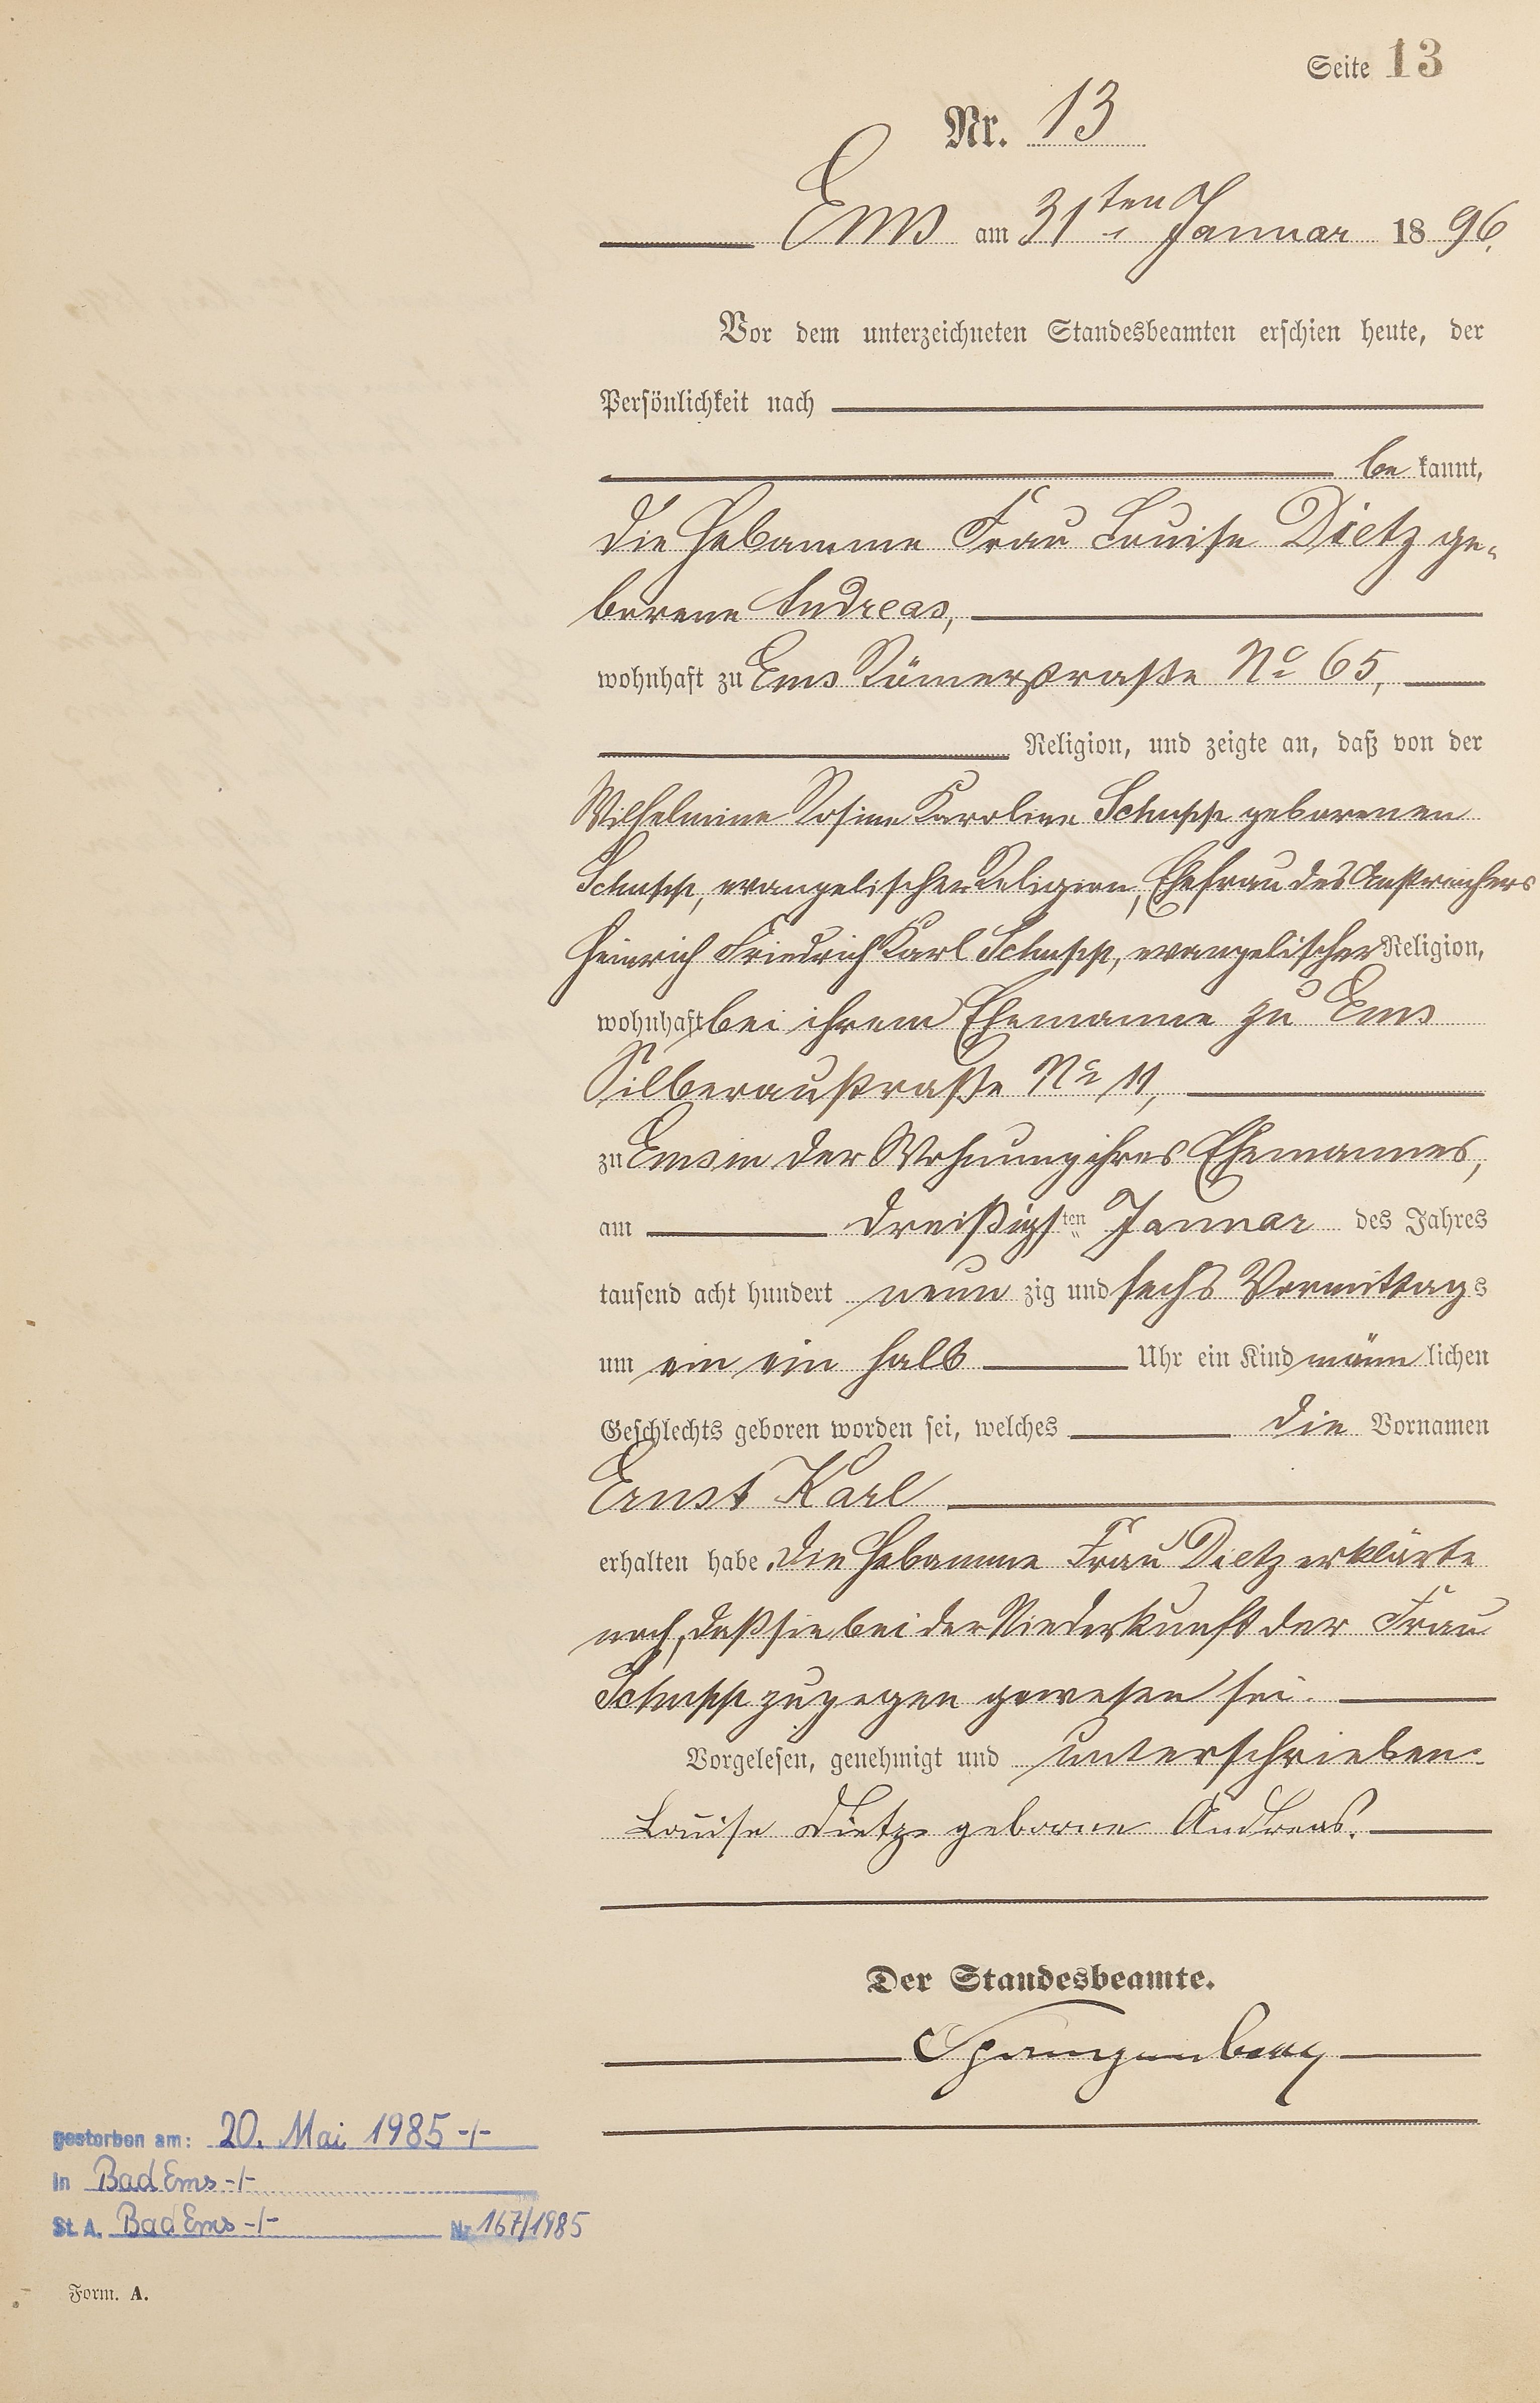 Seite 13
Nr. 13
Ems am 31ten Januar 1896.
Vor dem unterzeichneten Standesbeamten erschien heute, der
Persönlichkeit nach
be kannt,
die Hebamme Frau Louise Dietz ge-
borene Andreas,
wohnhaft zu Ems Römerstraße No 65,
Religion, und zeigte an, daß von der
Wilhelmine Rosine Karoline Schupp geborenen
Schupp, evangelischer Religion, Ehefrau des Anstreichers
Heinrich Friedrich Karl Schupp, evangelischer Religion,
wohnhaft bei ihrem Ehemanne zu Ems
Silberaustraße No 11,
zu Ems in der Wohnung ihres Ehemannes,
am dreißigsten Januar des Jahres
tausend acht hundert neun zig und sechs Vormittags
um ein ein halb Uhr ein Kind männ lichen
Geschlechts geboren worden sei, welches die Vornamen
Ernst Karl
erhalten habe. Die Hebamme Frau Dietz erklärte
noch, daß sie bei der Niederkunft der Frau
Schupp zugegen gewesen sei.
Vorgelesen, genehmigt und unterschrieben.
Louise Dietz geborne Andreas.
Der Standesbeamte.
Spangenberg
gestorben am: 20. Mai 1985 -/-
in Bad Ems -/-
St. A. Bad Ems -/- Nr. 167/1985
Form. A.